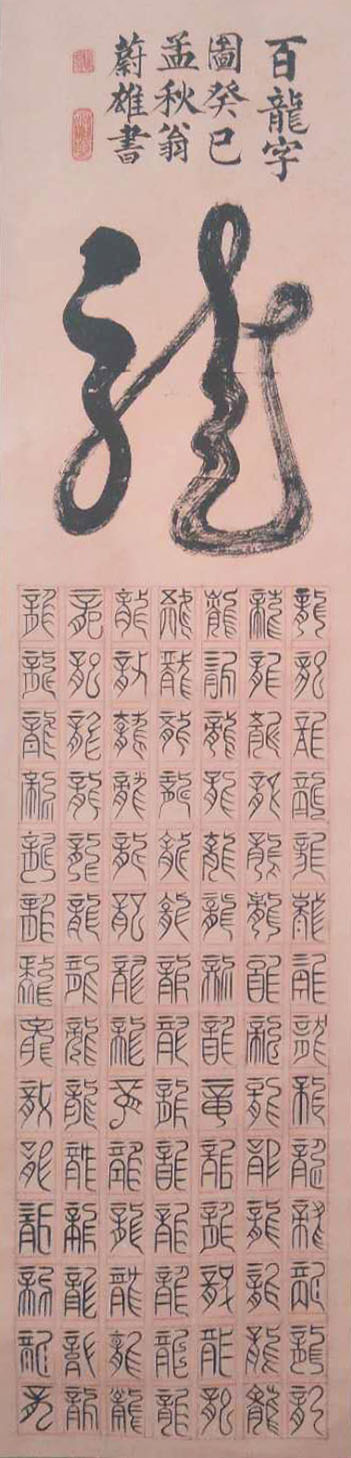 百龍字
圖癸巳
孟秋翁
蔚雄書
龍
龍龍龍龍龍龍龍龍龍龍龍龍龍龍
龍龍龍龍龍龍龍龍龍龍龍龍龍龍
龍龍龍龍龍龍龍龍龍龍龍龍龍龍
龍龍龍龍龍龍龍龍龍龍龍龍龍龍
龍龍龍龍龍龍龍龍龍龍龍龍龍龍
龍龍龍龍龍龍龍龍龍龍龍龍龍龍
龍龍龍龍龍龍龍龍龍龍龍龍龍龍